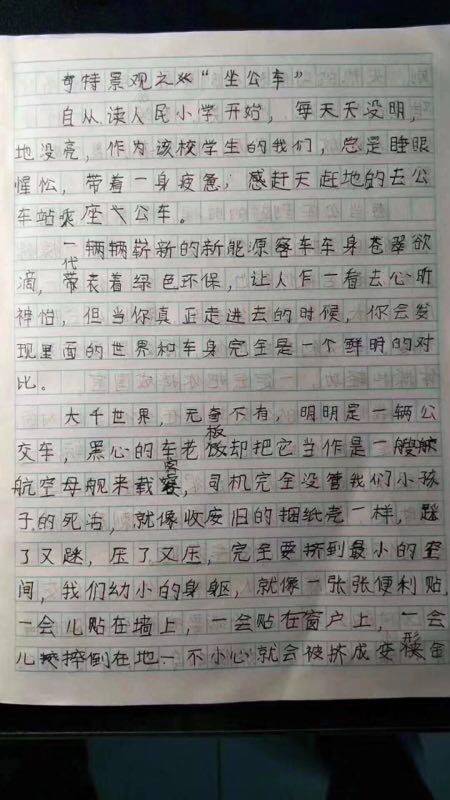 奇特景观之"坐公车"
自从读人民小学开始，每天天没明，
地没亮，作为该校学生的我们，总是睡眼
惺忪，带着一身疲惫，感赶天赶地的去公
车站乘座公车。
一辆辆崭新的新能源客车车身苍翠欲
滴，代表着绿色环保，让人乍一看去心旷
神怡，但当你真正走进去的时候，你会发
现里面的世界和车身完全是一个鲜明的对
比。
大千世界，无奇不有，明明是一辆公
交车，黑心的车老板却把它当作是一艘
航空母舰来载客，司机完全没管我们小孩
子的死活，就像收废旧的捆纸壳一样，
了又，压了又压，完全要挤到最小的空
间，我们幼小的身躯，就像一张张便利贴，
一会儿贴在墙上，一会贴在窗户上，一会
儿摔倒在地一不小心就会被挤成变形金